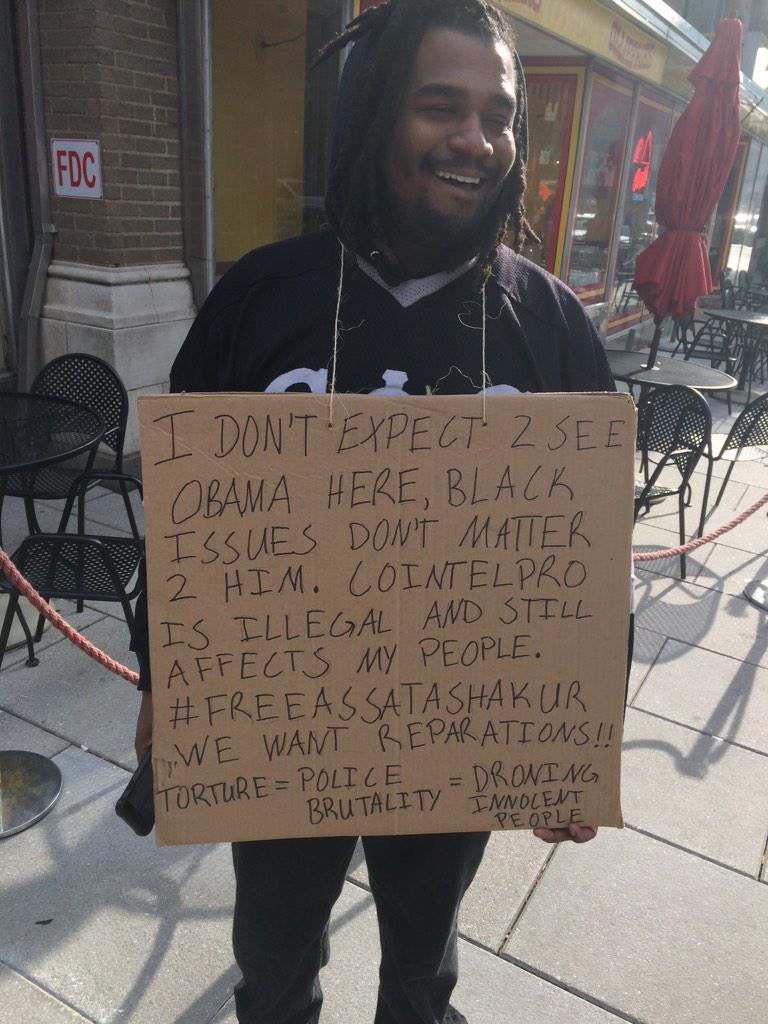 FDC
I DON'T EXPECT 2 SEE
OBAMA HERE, BLACK
ISSUES DON'T MATTER
2 HIM. COINTELPRO
IS ILLEGAL AND STILL
AFFECTS MY PEOPLE.
#FREEASSATASHAKUR
WE WANT REPARATIONS!!
TORTURE = POLICE BRUTALITY = DRONING INNOCENT PEOPLE